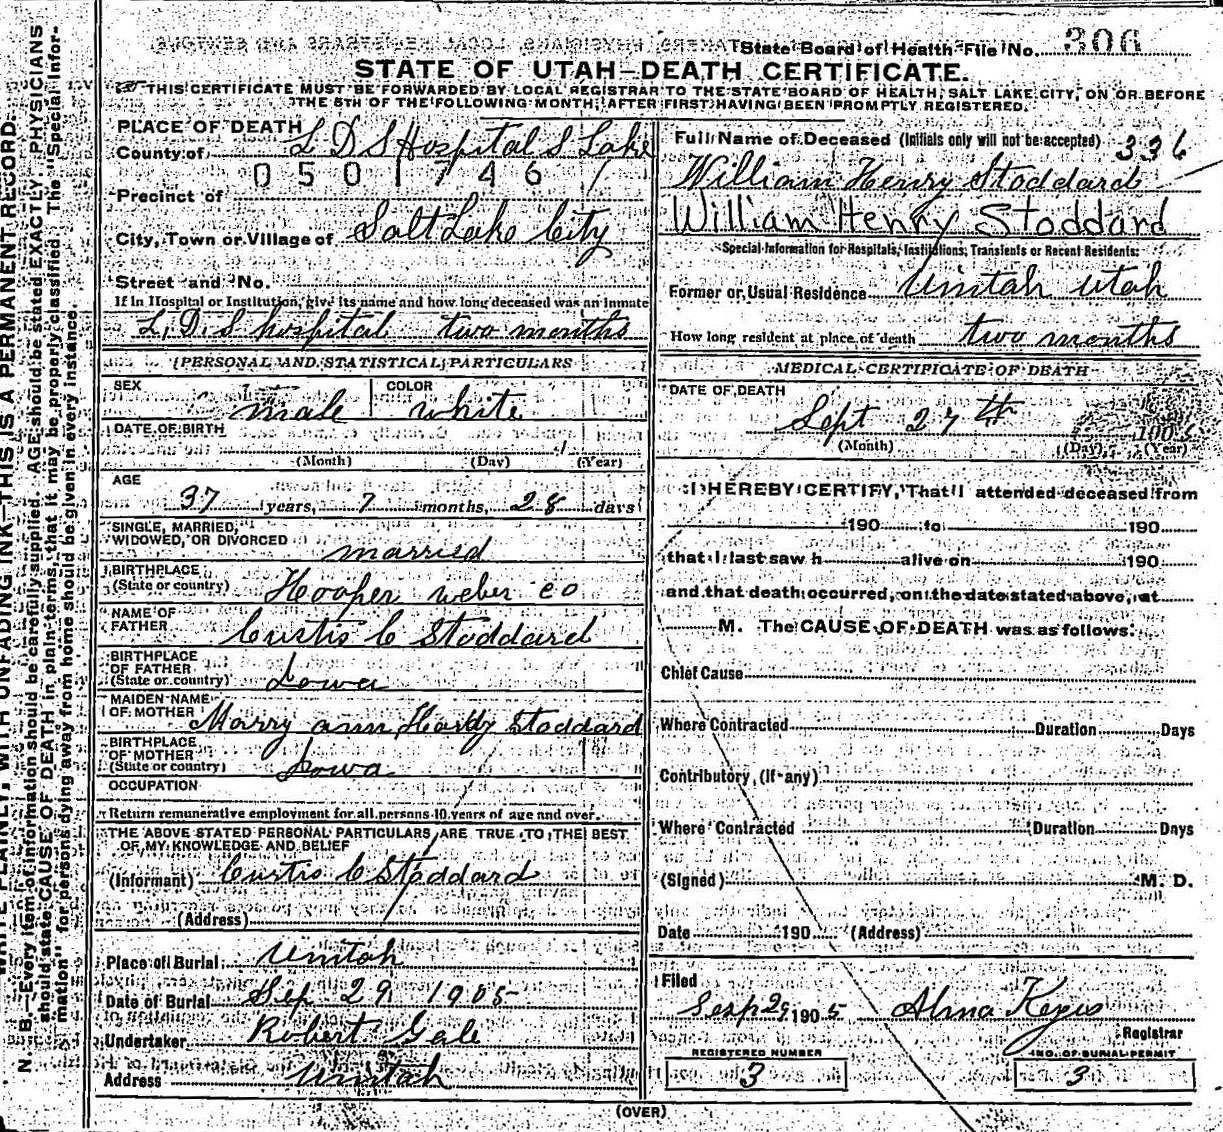 State Board of Health File No. 306
STATE OF UTAH—DEATH CERTIFICATE.
THIS CERTIFICATE MUST BE FORWARDED BY LOCAL REGISTRAR TO THE STATE BOARD OF HEALTH, SALT LAKE CITY, ON OR BEFORE
THE 5TH OF THE FOLLOWING MONTH, AFTER FIRST HAVING BEEN PROMPTLY REGISTERED.
PLACE OF DEATH
County of L D S Hospital S Lake
0501746
Precinct of
City, Town or Village of Salt Lake City
Street and No.
If in Hospital or Institution, give its name and how long deceased was an inmate
L. D. S hospital two months
PERSONAL AND STATISTICAL PARTICULARS
SEX male COLOR white
DATE OF BIRTH
(Month) (Day) (Year)
AGE
37 years, 7 months, 28 days
SINGLE, MARRIED,
WIDOWED, OR DIVORCED married
BIRTHPLACE
(State or country) Hooper weber co
NAME OF
FATHER Curtis C Stoddard
BIRTHPLACE
OF FATHER
(State or country) Iowa
MAIDEN NAME
OF MOTHER Marry ann Hardy Stoddard
BIRTHPLACE
OF MOTHER
(State or country) Iowa
OCCUPATION
Return remunerative employment for all persons 10 years of age and over.
THE ABOVE STATED PERSONAL PARTICULARS ARE TRUE TO THE BEST
OF MY KNOWLEDGE AND BELIEF
(Informant) Curtis C Stoddard
(Address)
Place of Burial Unitah
Date of Burial Sep 29 1905
Undertaker Robert Gale
Address Unitah
Full Name of Deceased (Initials only will not be accepted) 336
William Henry Stoddard
William Henry Stoddard
Special Information for Hospitals, Institutions, Transients or Recent Residents:
Former or Usual Residence Unitah Utah
How long resident at place of death two months
MEDICAL CERTIFICATE OF DEATH
DATE OF DEATH
Sept 27th 1905
(Month) (Day) (Year)
I HEREBY CERTIFY, That I attended deceased from
190 to 190
that I last saw h alive on 190
and that death occurred, on the date stated above, at
M. The CAUSE OF DEATH was as follows:
Chief Cause
Where Contracted Duration Days
Contributory, (if any)
Where Contracted Duration Days
(Signed) M. D.
Date 190 (Address)
Filed
Sesp 29 1905 Alma Keyes
Registrar
REGISTERED NUMBER
3
NO. OF BURIAL PERMIT
3
(OVER)
WRITE PLAINLY, WITH UNFADING INK—THIS IS A PERMANENT RECORD.
N. B.—Every item of information should be carefully supplied. AGE should be stated EXACTLY. PHYSICIANS
should state CAUSE OF DEATH in plain terms, that it may be properly classified. The "Special Infor-
mation" for persons dying away from home should be given in every instance.